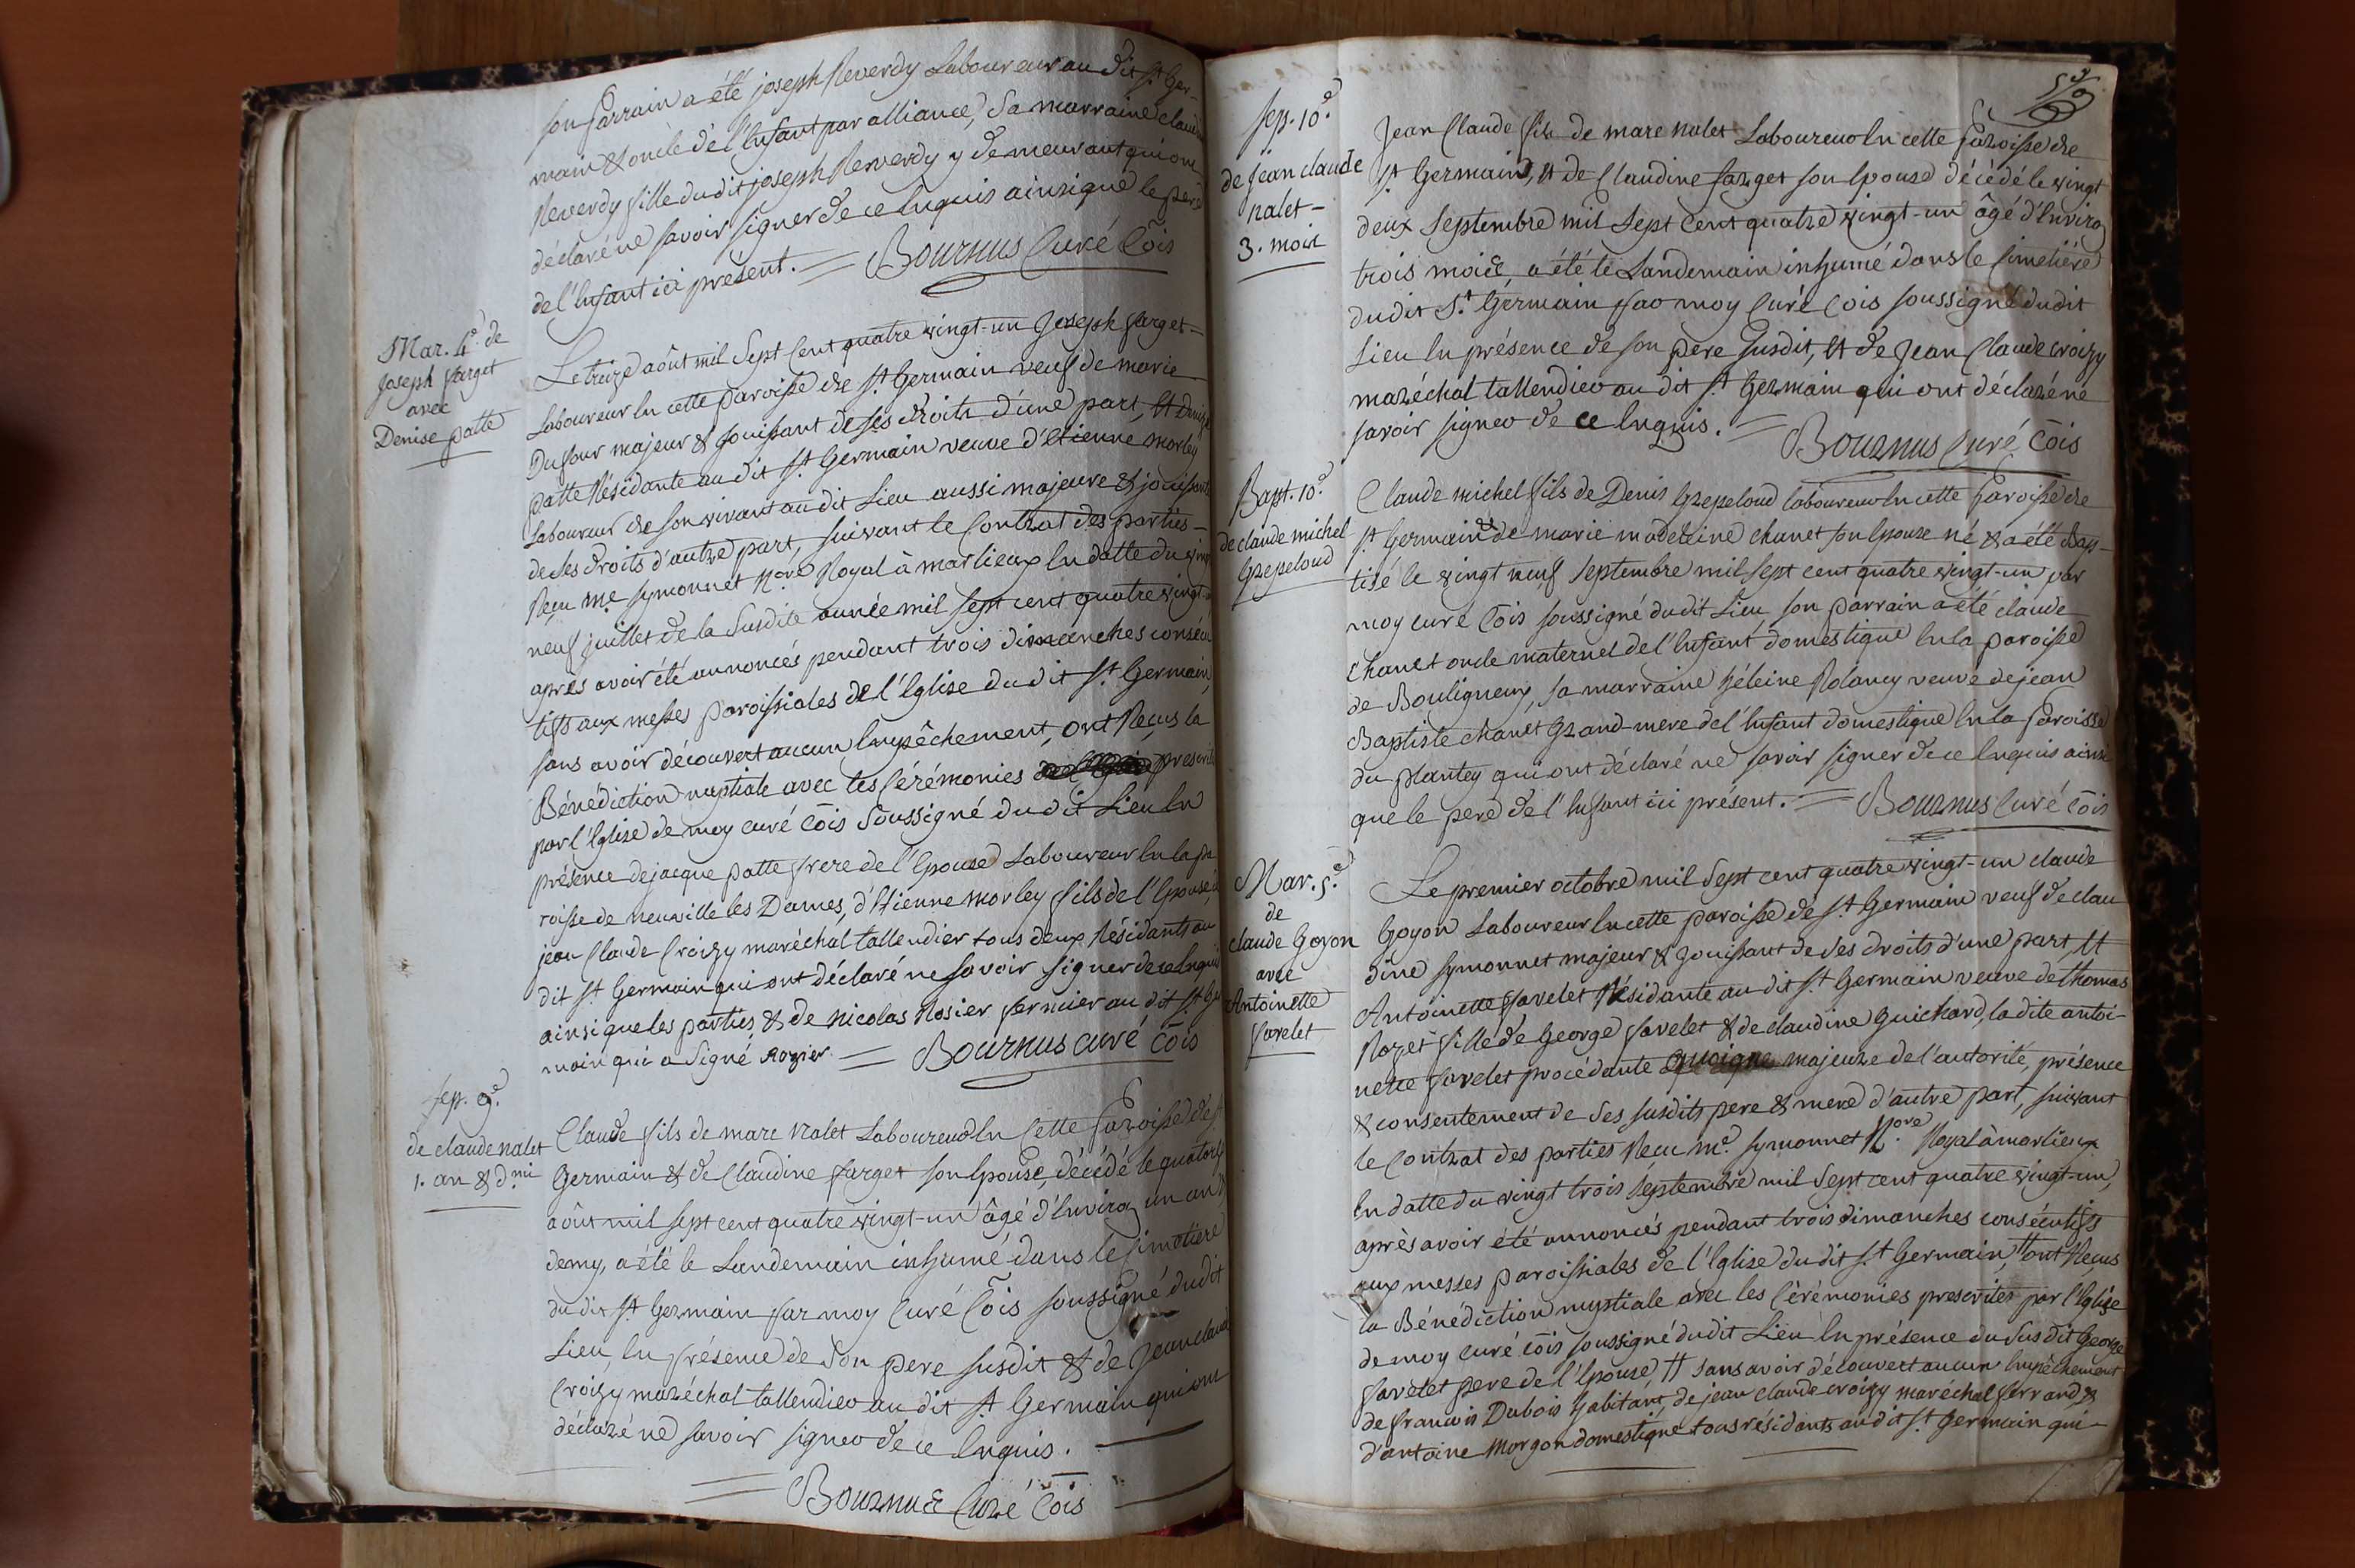 son parrain a été joseph Reverdy Laboureur au dit St Ger-
main & oncle de l'Enfant par alliance, Sa marraine claud
Reverdy fille dudit joseph Reverdy y demeurant qui on
déclaré ne savoir signer de ce Enquis ainsi que le pere
de l'Enfant ici présent. = Bournus Curé Cõis
Mar. 4e. de
Joseph farget
avec
Denise patte
Le treize août mil Sept Cent quatre vingt-un Joseph farget =
Laboureur En cette paroisse de St Germain veuf de marie
Dufour majeur & jouissant de ses droits d'une part, Et Denise
patte Résidante au dit St Germain veuve d'Etienne morley
Laboureur de son vivant au dit Lieu aussi majeure & jouissante
de ses droits d'autre part, suivant le Contrat des parties -
Reçu me symonnet Nore Royal à marlieux En datte du vingt
neuf juillet de la Susdite année mil sept cent quatre vingt-
après avoir été annoncés pendant trois dimanches conséc
tifs aux messes paroissiales de l'Eglise du dit St Germain,
sans avoir découvert aucun Empêchement, ont Reçus la
Bénédiction nuptiale avec les Cérémonies prescrit
par l'Eglise de moy curé cõis Soussigné du dit Lieu En
présence de jacque patte frere de l'Epouse Laboureur En la pa
roisse de neuville les Dames, d'Etienne morley fils de l'Epouse,
jean Claude Croizy maréchal tallendier tous deux Résidants au
dit St Germain qui ont déclaré ne savoir signer de ce Enquis
ainsi que les parties & de nicolas Rosier fermier au dit St Ger
main qui a Signé Rozier = Bournus curé cõis
Sep. 9e.
de claude nalet
1. an & dmi
Claude fils de marc nalet Laboureur En Cette Paroisse de St
Germain & de Claudine farget son Epouse, décédé le quatorze
août mil sept cent quatre vingt-un âgé d'Environ un an &
demy, a été le Landemain inhumé dans le Cimetiére
du dit St Germain par moy Curé Cõis soussigné dudit
Lieu, En présence de Son pere susdit & de Jean claude
Croizy maréchal tallendier au dit St Germain qui ont
déclaré ne savoir signer de ce Enquis.
Bournus Curé Cõis
59
Sep. 10e.
de jean claude
nalet -
3. mois
Jean Claude fils de marc nalet Laboureur En cette Paroisse de
St Germain, Et de Claudine farget son Epouse décédé le vingt
deux Septembre mil Sept Cent quatre vingt-un âgé d'Environ
trois mois a été le Landemain inhumé dans le Cimetiére
du dit St Germain par moy Curé Cõis soussigné dudit
Lieu En présence de son pere susdit, Et de Jean Claude croizy
maréchal tallendier au dit St Germain qui ont déclaré ne
savoir signer de ce Enquis. = Bournus Curé Cõis
Bapt. 10e.
de claude michel
Grepeloud
Claude michel fils de Denis Grepeloud laboureur En cette Paroisse de
St Germain & de marie madelaine chanet son Epouse né & a été Bap-
tisé le vingt neuf Septembre mil sept cent quatre vingt-un par
moy curé Cõis soussigné du dit Lieu, son parrain a été claude
Chanet oncle maternel de l'Enfant domestique En la paroisse
de Bouligneux, sa marraine héleine Rolancy veuve de jean
Baptiste chanet Grand-mere de l'Enfant domestique En la Paroisse
du plantey qui ont déclaré ne savoir signer de ce Enquis ainsi
que le pere de l'Enfant ici présent. = Bournus Curé Cõis
Mar. 5e.
de
claude Goyon
avec
Antoinette
favelet
Le premier octobre mil Sept cent quatre vingt-un claude
Goyon Laboureur En cette paroisse de St Germain veuf de clau
dine symonnet majeur & jouissant de ses droits d'une part, Et
Antoinette favelet Résidante au dit St Germain veuve de thomas
Rozet fille de George favelet & de claudine Guichard, la dite antoi-
nette favelet procédante quoique majeure de l'autorité, présence
& consentement de Ses susdits pere & mere d'autre part, suivant
le Contrat des parties Reçu me. symonnet Nore Royal à marlieux
En datte du vingt trois septembre mil Sept cent quatre vingt-un,
après avoir été annoncés pendant trois dimanches consécutifs
aux messes paroissiales de l'Eglise du dit St Germain, # ont Reçus
la Bénédiction nuptiale avec les Cérémonies prescrites par l'Eglise
de moy curé cõis soussigné dudit Lieu En présence du Susdit George
favelet pere de l'Epouse, # sans avoir découvert aucun Empêchement
de francois Dubois habitant, de jean claude croizy maréchal ferrand, &
d'antoine Morgon domestique tous résidants au dit St Germain qui -